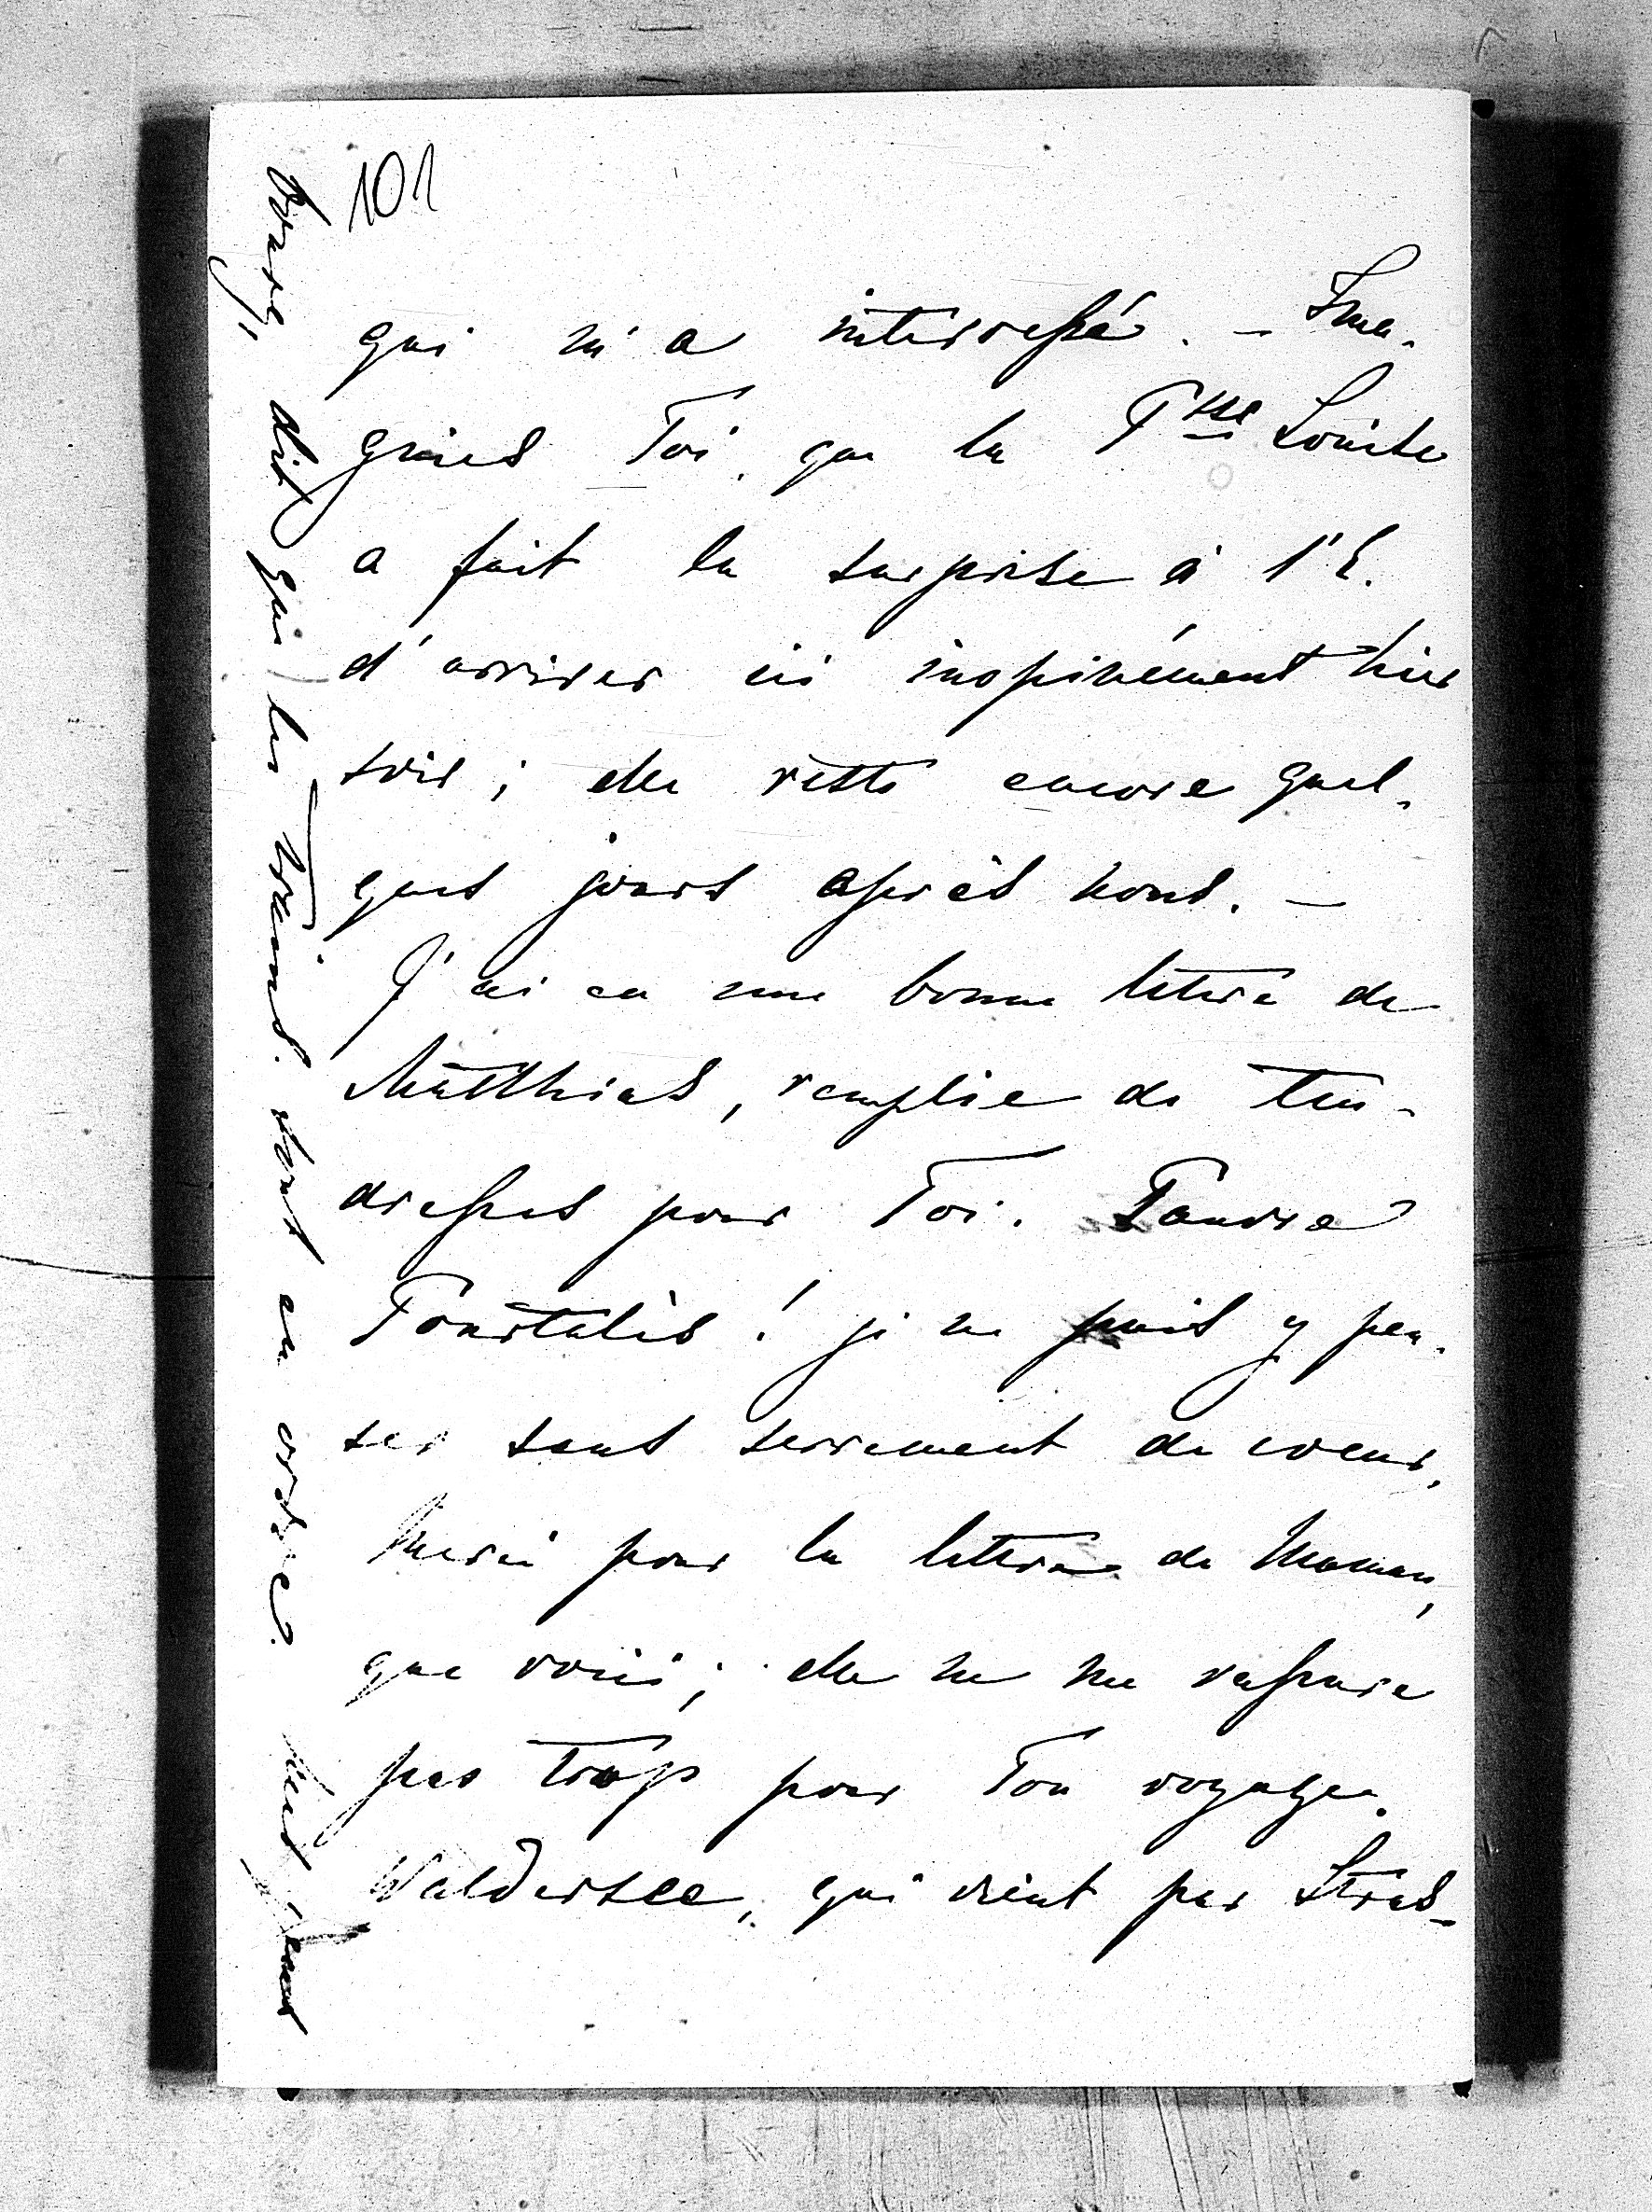 101
qui m'a interressé. – Ima-
gines Toi que la Psse Louise
a fait la surprise à l'E.
d'arriver ici inopinément hier
soir ; elle reste encore quel-
ques jours après nous. –
J'ai eu une bonne lettre de
Matthias, remplie de ten-
dresses pour Toi. Pauvre
Pourtalès ! je ne puis y pen-
ser sans serrement de coeur.
Merci pour la lettre de Maman,
que voici ; elle ne me rassure
pas trop pour Ton voyage.
Waldersee, qui vient par Stras-
bourg, dit que les trains sont en ordre.